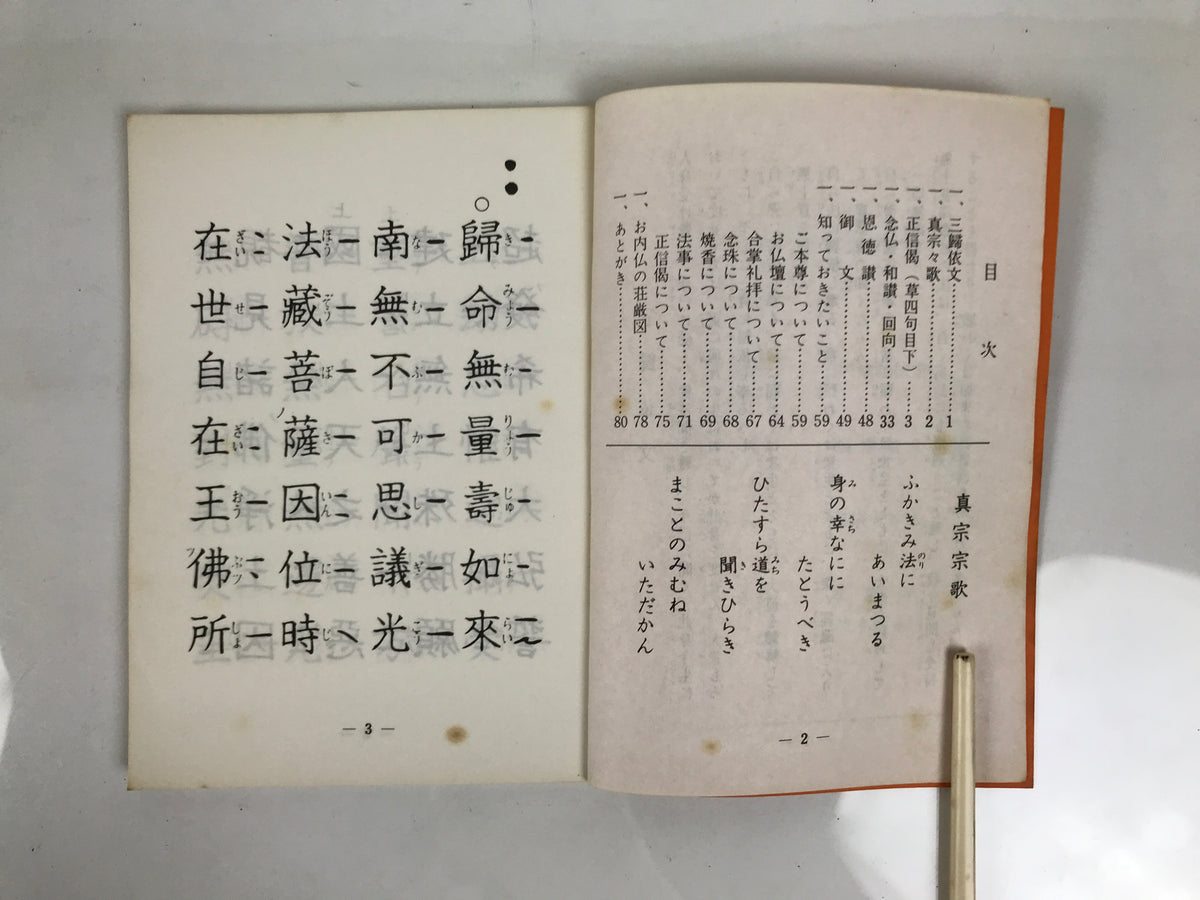 目次
一、三歸依文…………1
一、真宗々歌…………2
一、正信偈(草四句目下)……3
一、念仏・和讃・回向…………33
一、恩徳讃…………48
一、御文…………49
一、知っておきたいこと…………59
ご本尊について…………59
お仏壇について…………64
合掌礼拝について…………67
念珠について…………68
焼香について…………69
法事について…………71
正信偈について…………75
一、お内仏の荘厳図…………78
一、あとがき…………80
真宗宗歌
ふかきみ法に
あいまつる
身の幸なにに
たとうべき
ひたすら道を
聞きひらき
まことのみむね
いただかん
― 2 ―
歸命無量壽如來
南無不可思議光
法藏菩薩因位時
在世自在王佛所
― 3 ―